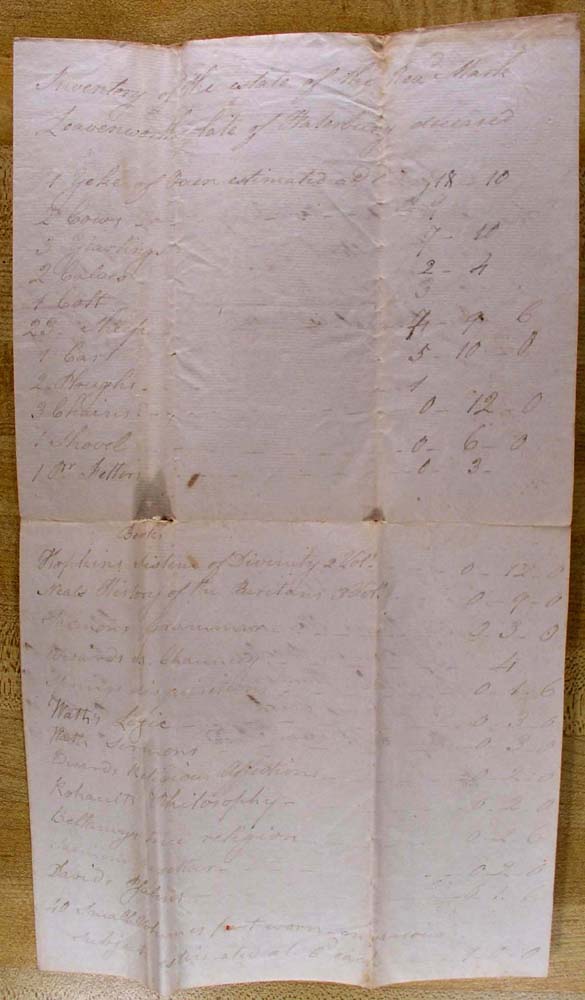 Inventory of the estate of the Revd Mark
Leavenworth late of Waterbury deceased
1 Yoke of Oxen estimated 18 - 10
2 Cows
3 Yearlings 7 - 10
2 Calves 2 - 4
1 Colt 3
23 Sheep 4 - 9 - 6
1 Cart 5 - 10 - 0
2 Ploughs 1
3 Chains 0 - 12 - 0
1 Shovel 0 - 6 - 0
1 Pr Fetters 0 - 3 -
Books
Hopkins Sistem of Divinity 2 Vol. 0 - 12 - 0
Neals History of the Puritans 0 - 9 - 0
Grammar 2 - 3 - 0
Edwards vs. Chauncy 4
0 - 1 - 6
Watts Logic 0 - 3 - 0
Watts Sermons 0 - 3 - 0
Edwards Religious Affections 0 - 2 - 0
Rohaults Philosophy 0 - 2 - 0
Bellamys true religion 6
0 - 2 - 0
Davids Psalms 6
40 Small Volumes part worn on various
subjects estimated at 6d each 1 - 0 - 0